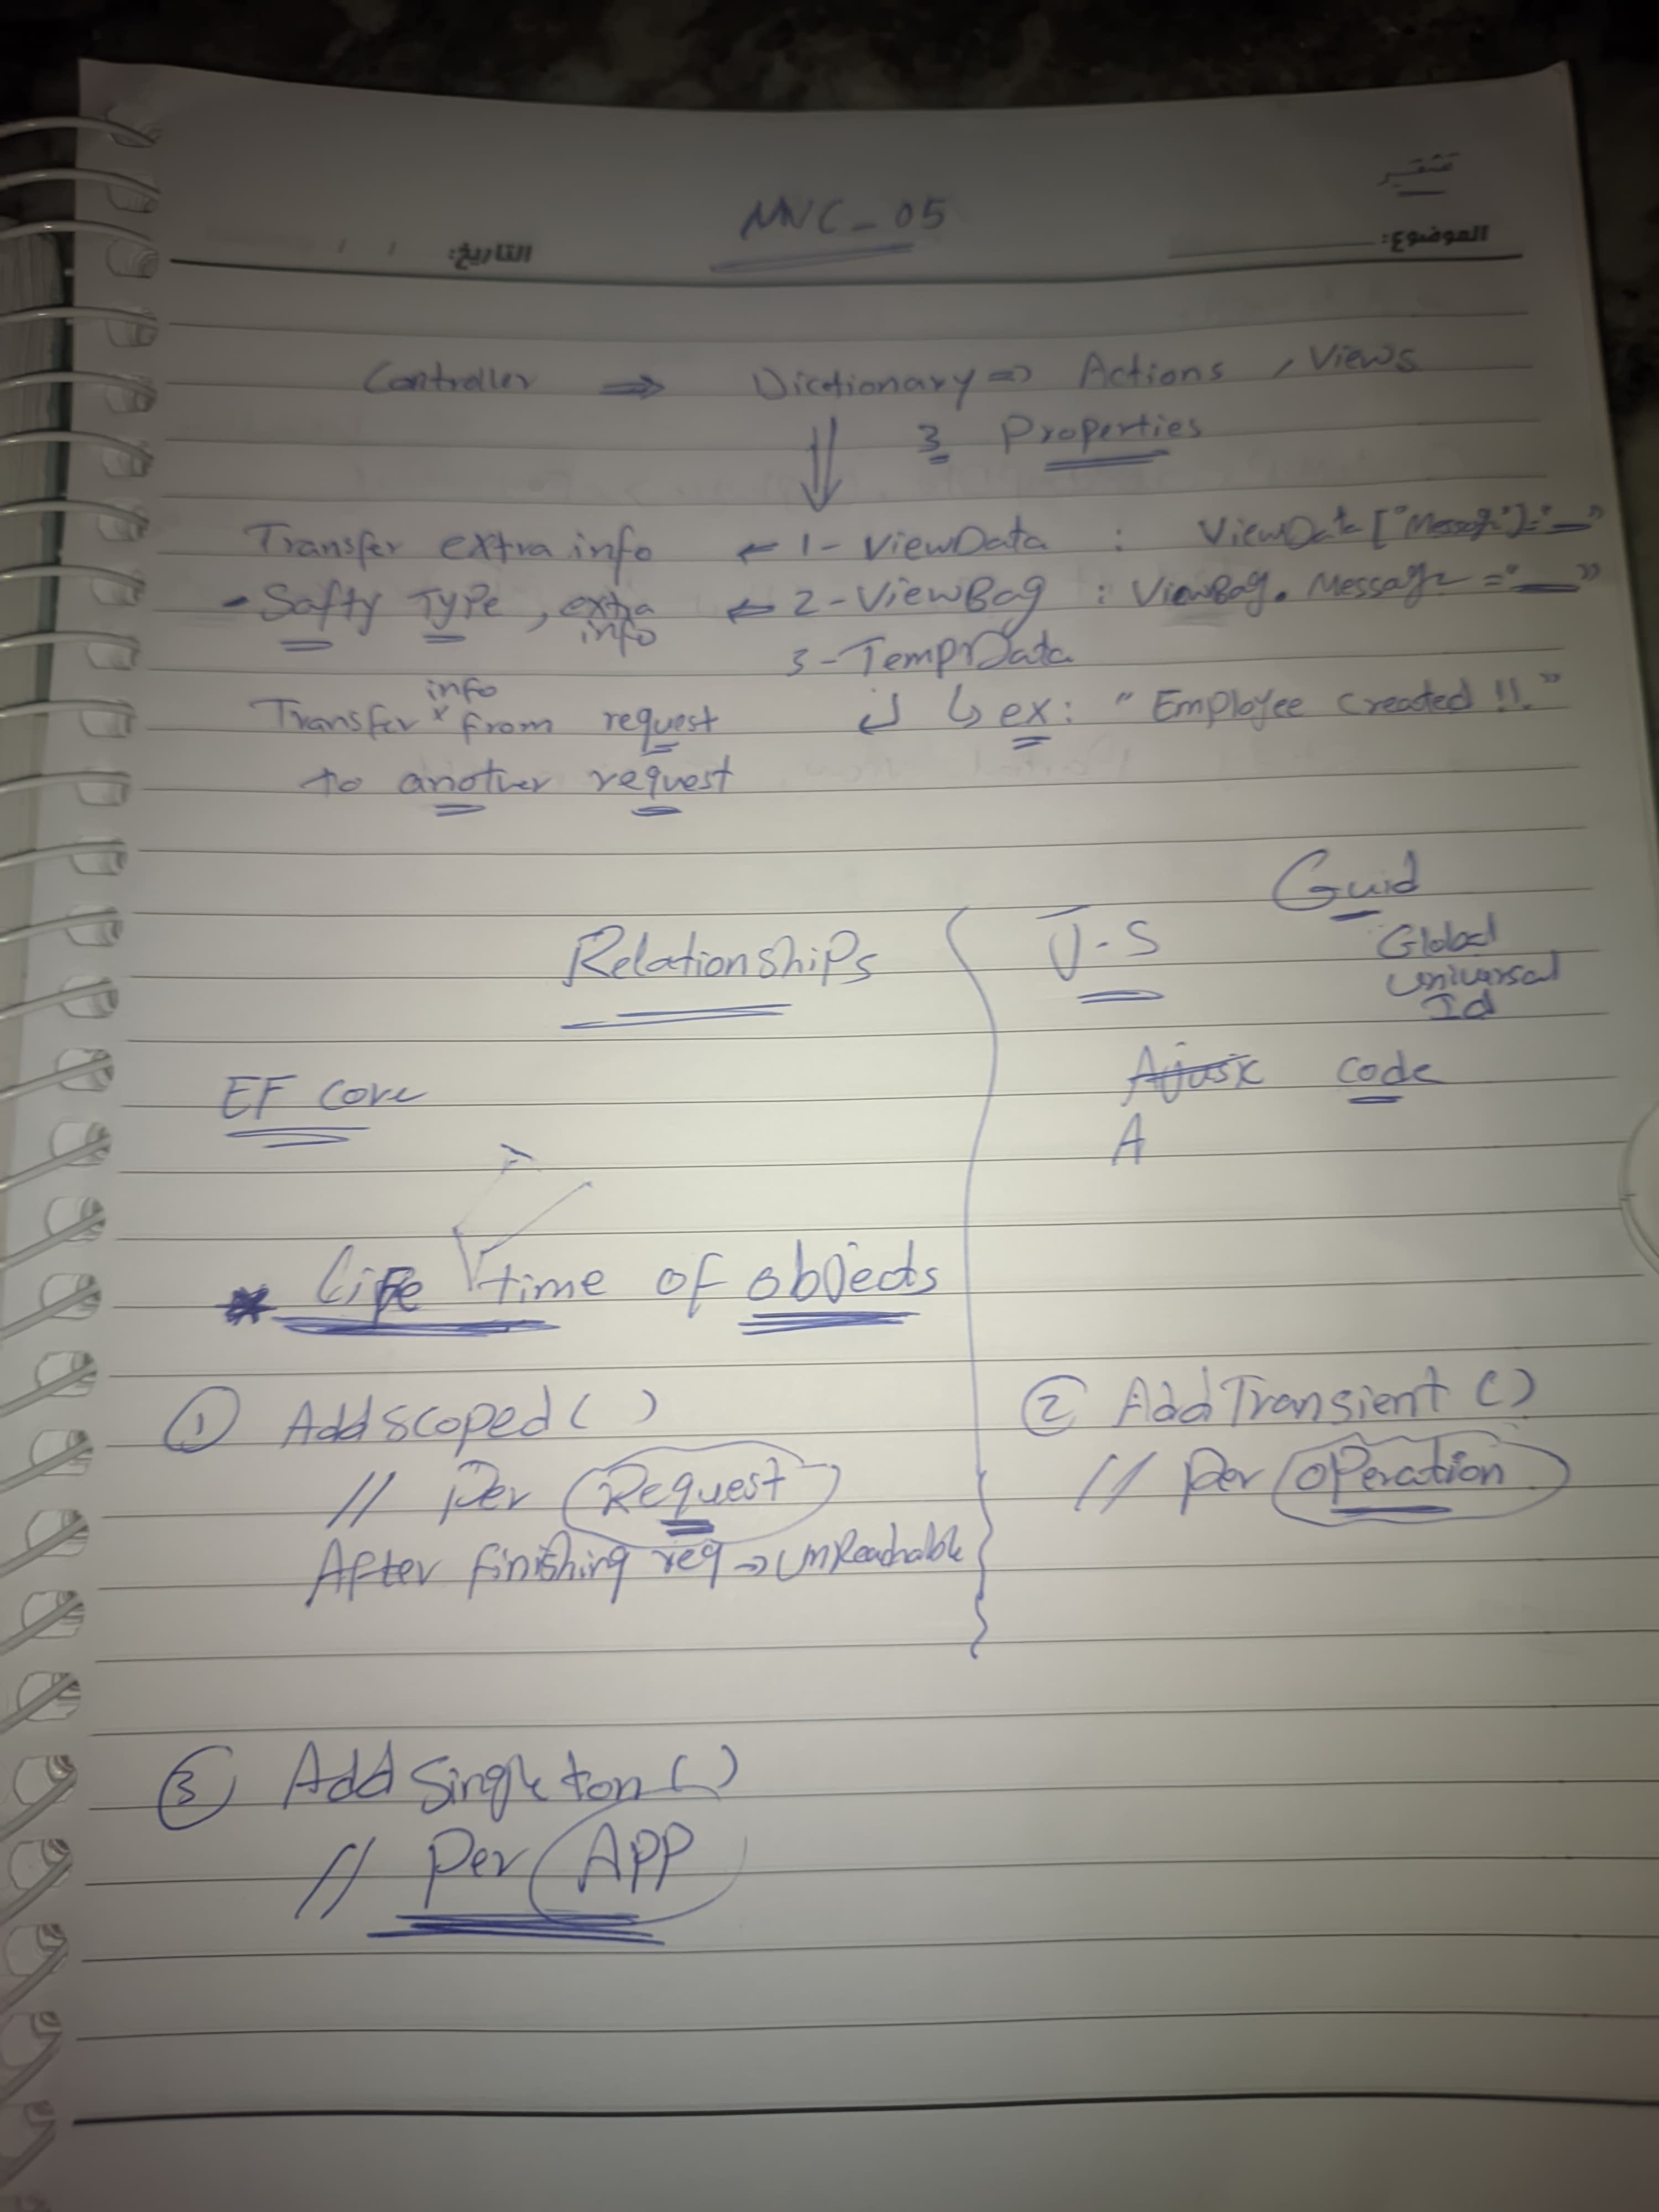 MVC_05
الموضوع:
التاريخ: / /
Controller ⇒ Dictionary ⇒ Actions , Views
3 Properties
Transfer extra info ← 1- ViewData : ViewData["Message"]="__"
- Safty Type, extra info ← 2- ViewBag : ViewBag. Message = "__"
3- TemprData
Transfer info from request ↲ ↳ ex: " Employee Created !!."
to another request
Guid
Global
Universal
Id
Relationships
J-S
EF Core
code
A
* Life time of objects
① AddScoped ( )
// Per Request
After finishing req → UnReachable
② AddTransient ()
// Per Operation
③ AddSingleton ( )
// Per APP